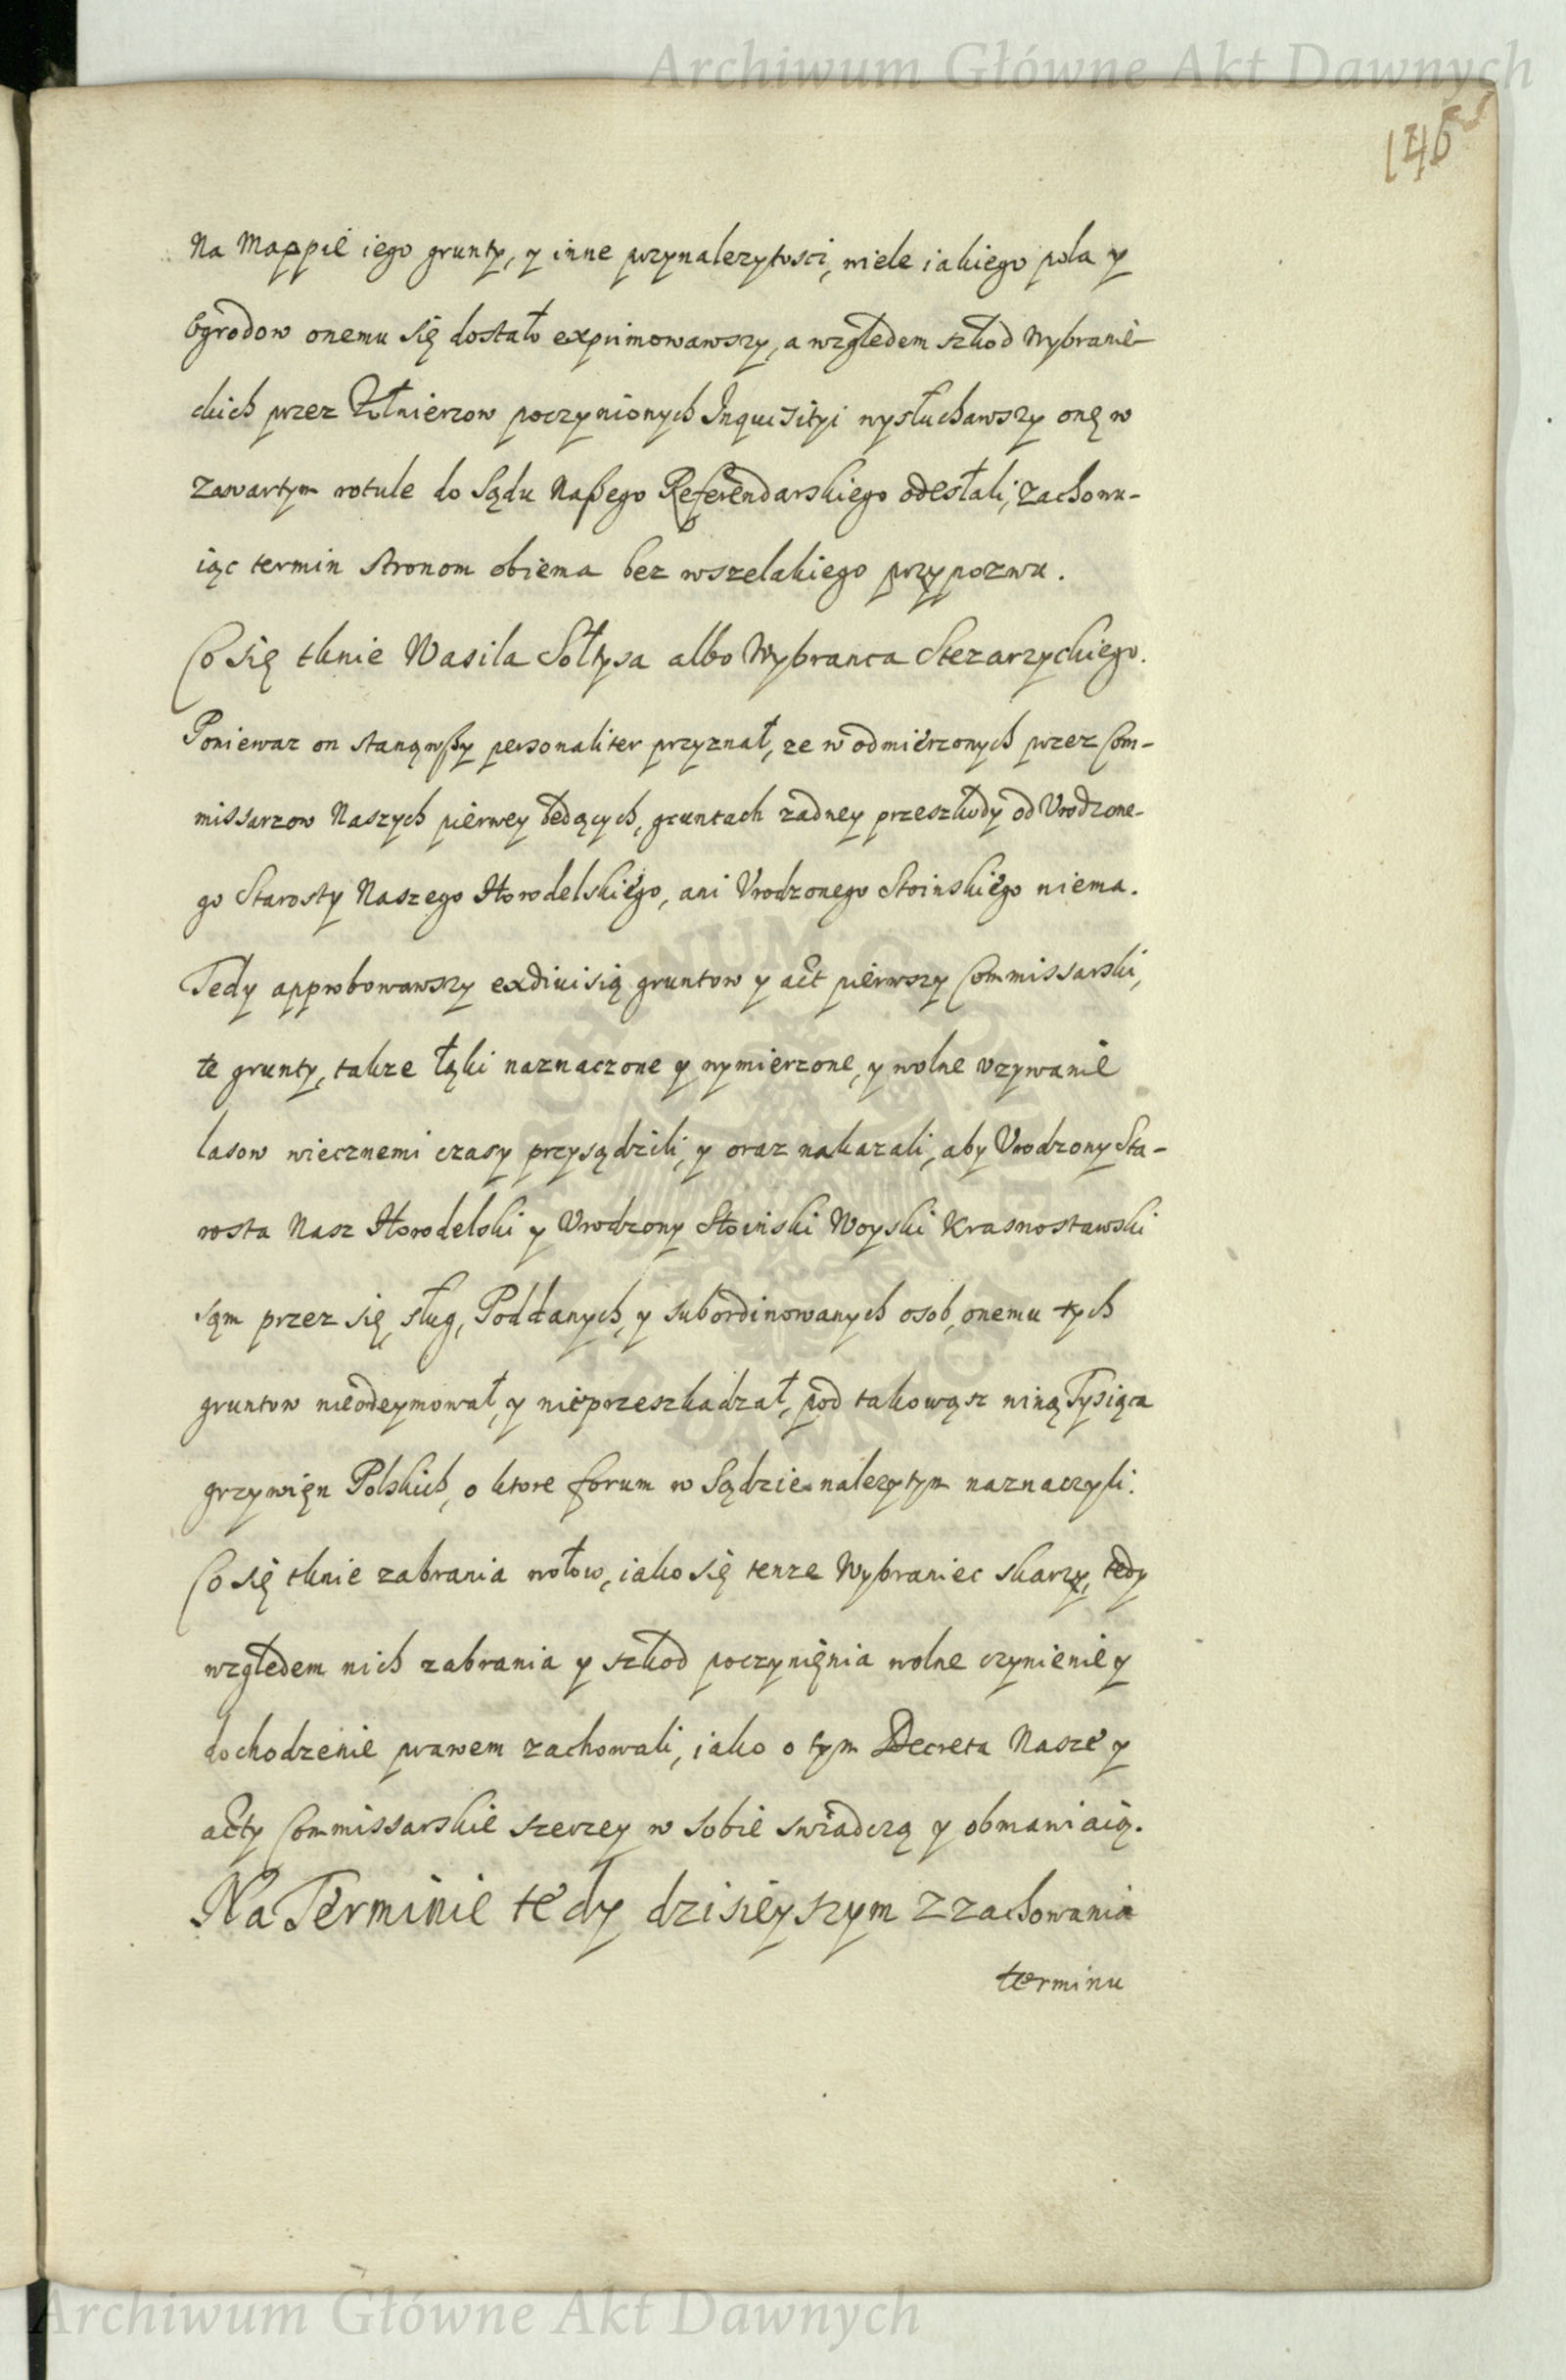 Archiwum Główne Akt Dawnych
146
Na Mappie iego grunty, y inne przynalezytosci, wiele iakiego pola y
Ogrodow onemu się dostało exprimowawszy, a względem szkod Wybranie-
ckich przez Zołnierzow poczynionych Inquisityi wysłuchawszy onę w
zawartym rotule do Sądu Naszego Referendarskiego odesłali, zachowu-
iąc termin stronom obiema bez wszelakiego przypozwu.
Co się tknie Wasila Sołtysa albo Wybranca Stezarzyckiego.
Poniewaz on stanąwszy personaliter przyznał, ze w odmierzonych przez Com-
missarzow Naszych pierwey będących, gruntach zadney przeszkody od Vrodzone-
go Starosty Naszego Horodelskiego, ani Vrodzonego Stoinskiego niema.
Tedy approbowawszy exdiuisią gruntow y act pierwszy Commissarski,
te grunty, takze łąki naznaczone y wymierzone, y wolne vzywanie
lasow wiecznemi czasy przysądzili, y oraz nakazali, aby Vrodzony Sta-
rosta Nasz Horodelski y Vrodzony Stoinski Woyski Krasnostawski
sąm przez się, sług, Poddanych, y subordinowanych osob, onemu tych
gruntow nieodeymował, y nieprzeszkadzał, pod takowąsz winą Tysiąca
grzywięn Polskich, o ktore forum w Sądzie nalezytym naznaczyli.
Co się tknie zabrania wołow, iako się tenze Wybraniec skarzy, tedy
względem nich zabrania y szkod poczynięnia wolne czynienie y
dochodzenie prawem zachowali, iako o tym Decreta Nasze y
acty Commissarskie szerzey w sobie swiadczą y obmawiaią.
Na Terminie tedy dzisieyszym z zachowania
terminu
Archiwum Główne Akt Dawnych